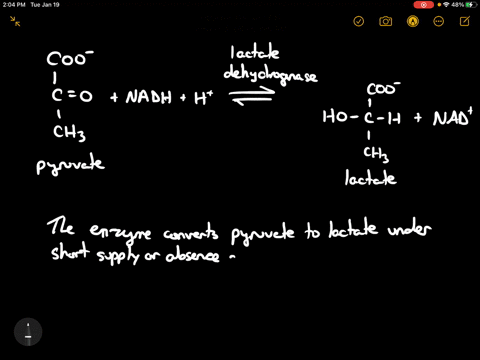 2:04 PM Tue Jan 19
48%
COO⁻
C=O + NADH + H⁺
CH₃
pyruvate
lactate
dehydrognase
COO⁻
HO-C-H + NAD⁺
CH₃
lactate
The enzyme converts pyruvate to lactate under
short supply or absence